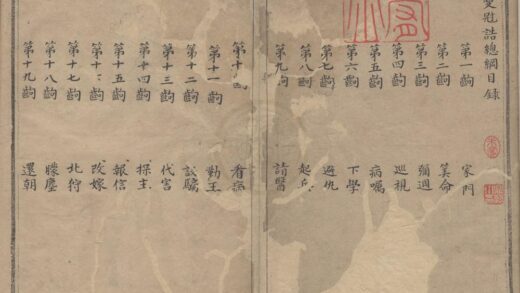 誥總綱目錄
第一齣 家門
第二齣 算命
第三齣 彌週
第四齣 巡視
第五齣 病囑
第六齣 下學
第七齣 避仇
第八齣 起兵
第九齣 請醫
第十齣 看
第十一齣 勤王
第十二齣 設騙
第十三齣 代宮
第十四齣 探主
第十五齣 報信
第十齣 改嫁
第十七齣 北狩
第十八齣 朦塵
第十九齣 還朝